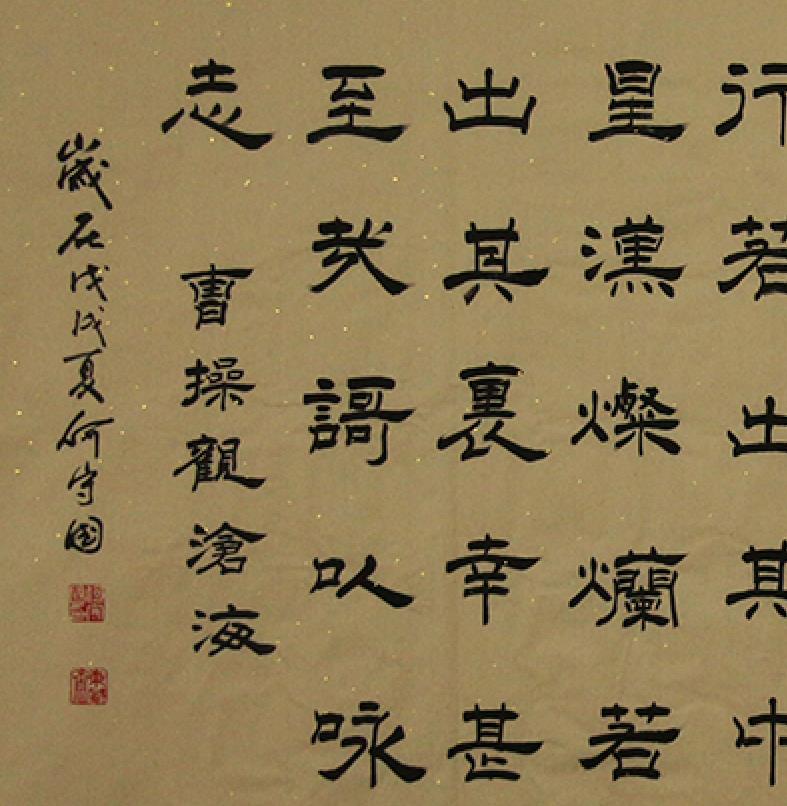 行若出其中
星漢燦爛若
出其裏幸甚
至哉謌以咏
志 曹操觀滄海
歲在戊戌夏何守國